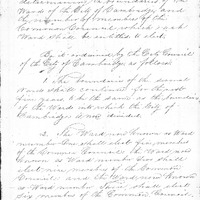 determining the boundaries of the
Wards of the City of Cambridge &
the number of members of the
Common Council which each
Ward shall be entitled to elect.
Be it ordained by the City Council
of the City of Cambridge as follows
1. The boundaries of the several
Wards shall continue for the next
five years to be the same as
of the Wards into which the City of
Cambridge is now divided.
2. The Ward now known as Ward
number One shall elect five members
of the Common Council, the Ward now
known as Ward number Two shall
elect members of the Common
Council and the Ward now known
as Ward number shall elect
six members of the Common Council,